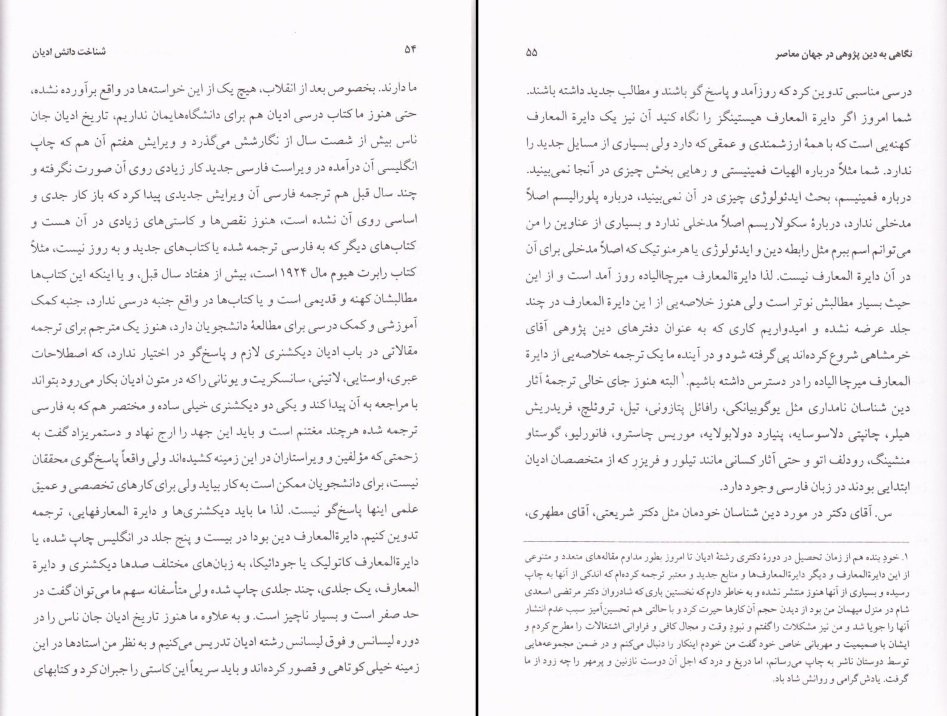 ۵۴ شناخت دانش ادیان
ما دارند. بخصوص بعد از انقلاب، هیچ یک از این خواسته‌ها در واقع برآورده نشده،
حتی هنوز ما کتاب درسی ادیان هم برای دانشگاه‌هایمان نداریم، تاریخ ادیان جان
ناس بیش از شصت سال از نگارشش می‌گذرد و ویرایش هفتم آن هم که چاپ
انگلیسی آن درآمده در ویراست فارسی جدید کار زیادی روی آن صورت نگرفته و
چند سال قبل هم ترجمه فارسی آن ویرایش جدیدی پیدا کرد که باز کار جدی و
اساسی روی آن نشده است، هنوز نقص‌ها و کاستی‌های زیادی در آن هست و
کتاب‌های دیگر که به فارسی ترجمه شده یا کتاب‌های جدید و به روز نیست، مثلاً
کتاب رابرت هیوم مال ۱۹۲۴ است، بیش از هفتاد سال قبل، و یا اینکه این کتاب‌ها
مطالبشان کهنه و قدیمی است و یا کتاب‌ها در واقع جنبه درسی ندارد، جنبه کمک
آموزشی و کمک درسی برای مطالعهٔ دانشجویان دارد، هنوز یک مترجم برای ترجمه
مقالاتی در باب ادیان دیکشنری لازم و پاسخ‌گو در اختیار ندارد، که اصطلاحات
عبری، اوستایی، لاتینی، سانسکریت و یونانی را که در متون ادیان بکار می‌رود بتواند
با مراجعه به آن پیدا کند و یکی دو دیکشنری خیلی ساده و مختصر هم که به فارسی
ترجمه شده هرچند مغتنم است و باید این جهد را ارج نهاد و دستمریزاد گفت به
زحمتی که مؤلفین و ویراستاران در این زمینه کشیده‌اند ولی واقعاً پاسخ‌گوی محققان
نیست، برای دانشجویان ممکن است به کار بیاید ولی برای کارهای تخصصی و عمیق
علمی اینها پاسخ‌گو نیست. لذا ما باید دیکشنری‌ها و دایرة المعارفهایی، ترجمه
تدوین کنیم. دائرةالمعارف دین بود ا در بیست و پنج جلد در انگلیس چاپ شده، یا
دایرةالمعارف کاتولیک یا جودائیکا، به زبان‌های مختلف صدها دیکشنری و دایرة
المعارف، یک جلدی، چند جلدی چاپ شده ولی متأسفانه سهم ما می‌توان گفت در
حد صفر است و بسیار ناچیز است. و به علاوه ما هنوز تاریخ ادیان جان ناس را در
دوره لیسانس و فوق لیسانس رشته ادیان تدریس می‌کنیم و به نظر من استادها در این
زمینه خیلی کوتاهی و قصور کرده‌اند و باید سریعاً این کاستی را جبران کرد و کتابهای
نگاهی به دین پژوهی در جهان معاصر ۵۵
درسی مناسبی تدوین کرد که روزآمد و پاسخ گو باشند و مطالب جدید داشته باشند.
شما امروز اگر دایرة المعارف هیستینگز را نگاه کنید آن نیز یک دایرة المعارف
کهنه‌یی است که با همهٔ ارزشمندی و عمقی که دارد ولی بسیاری از مسایل جدید را
ندارد. شما مثلاً درباره الهیات فمینیستی و رهایی بخش چیزی در آنجا نمی‌بینید.
درباره فمینیسم، بحث ایدئولوژی چیزی در آن نمی‌بینید، درباره پلورالیسم اصلاً
مدخلی ندارد، دربارهٔ سکولاریسم اصلاً مدخلی ندارد و بسیاری از عناوین را من
می‌توانم اسم ببرم مثل رابطه دین و ایدئولوژی یا هرمنوتیک که اصلاً مدخلی برای آن
در آن دایرة المعارف نیست. لذا دایرةالمعارف میرچاالیاده روز آمد است و از این
حیث بسیار مطالبش نو تر است ولی هنوز خلاصه‌یی از ا ین دایرة المعارف در چند
جلد عرضه نشده و امیدواریم کاری که به عنوان دفترهای دین پژوهی آقای
خرمشاهی شروع کرده‌اند پی گرفته شود و در آینده ما یک ترجمه خلاصه‌یی از دایرة
المعارف میرچا الیاده را در دسترس داشته باشیم.۱ البته هنوز جای خالی ترجمهٔ آثار
دین شناسان نامداری مثل یوگوبیانکی، رافائل پتازونی، تیل، تروئلچ، فریدریش
هیلر، چانپتی دلاسوسایه، پنیارد دولابولایه، موریس چاسترو، فانورلیو، گوستاو
منشینگ، رودلف اتو و حتی آثار کسانی مانند تیلور و فریزر که از متخصصان ادیان
ابتدایی بودند در زبان فارسی وجود دارد.
س. آقای دکتر در مورد دین شناسان خودمان مثل دکتر شریعتی، آقای مطهری،
۱. خودِ بنده هم از زمان تحصیل در دورهٔ دکتری رشتهٔ ادیان تا امروز بطور مداوم مقاله‌های متعدد و متنوعی
از این دایرةالمعارف و دیگر دایرةالمعارف‌ها و منابع جدید و معتبر ترجمه کرده‌ام که اندکی از آنها به چاپ
رسیده و بسیاری از آنها هنوز منتشر نشده و به خاطر دارم که نخستین باری که شادروان دکتر مرتضی اسعدی
شام در منزل میهمان من بود از دیدن حجم آن کارها حیرت کرد و با حالتی هم تحسین‌آمیز سبب عدم انتشار
آنها را جویا شد و من نیز مشکلات را گفتم و نبودِ وقت و مجال کافی و فراوانی اشتغالات را مطرح کردم و
ایشان با صمیمیت و مهربانی خاص خود گفت من خودم اینکار را دنبال می‌کنم و در ضمن مجموعه‌هایی
توسط دوستان ناشر به چاپ می‌رسانم، اما دریغ و درد که اجل آن دوست نازنین و پرمهر را چه زود از ما
گرفت. یادش گرامی و روانش شاد باد.